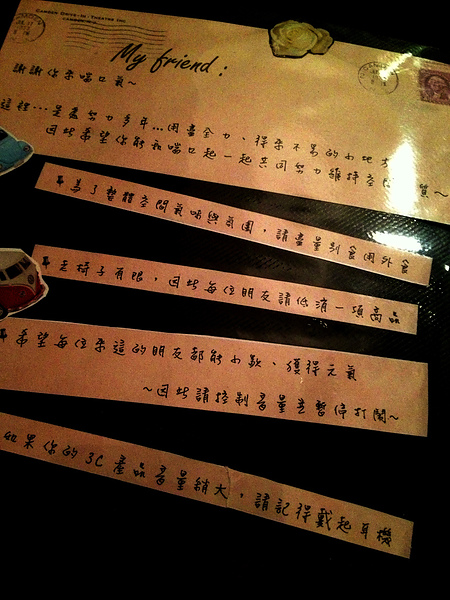 CAMDEN DRIVE-IN-THEATRE INC.
My friend:
謝謝你來喘口氣~
這裡…是盡努力多年…用盡全力、得來不易的小地方
因此希望你能和喘口起一起共同努力維持空間 質~
為了整體空間氣味與氛圍,請盡量別食用外食
桌椅子有限,因此每位朋友請低消一項商品
希望每位來這的朋友都能小歇、獲得元氣
~因此請控制音量並暫停打鬧~
如果你的3C產品音量稍大,請記得戴起耳機